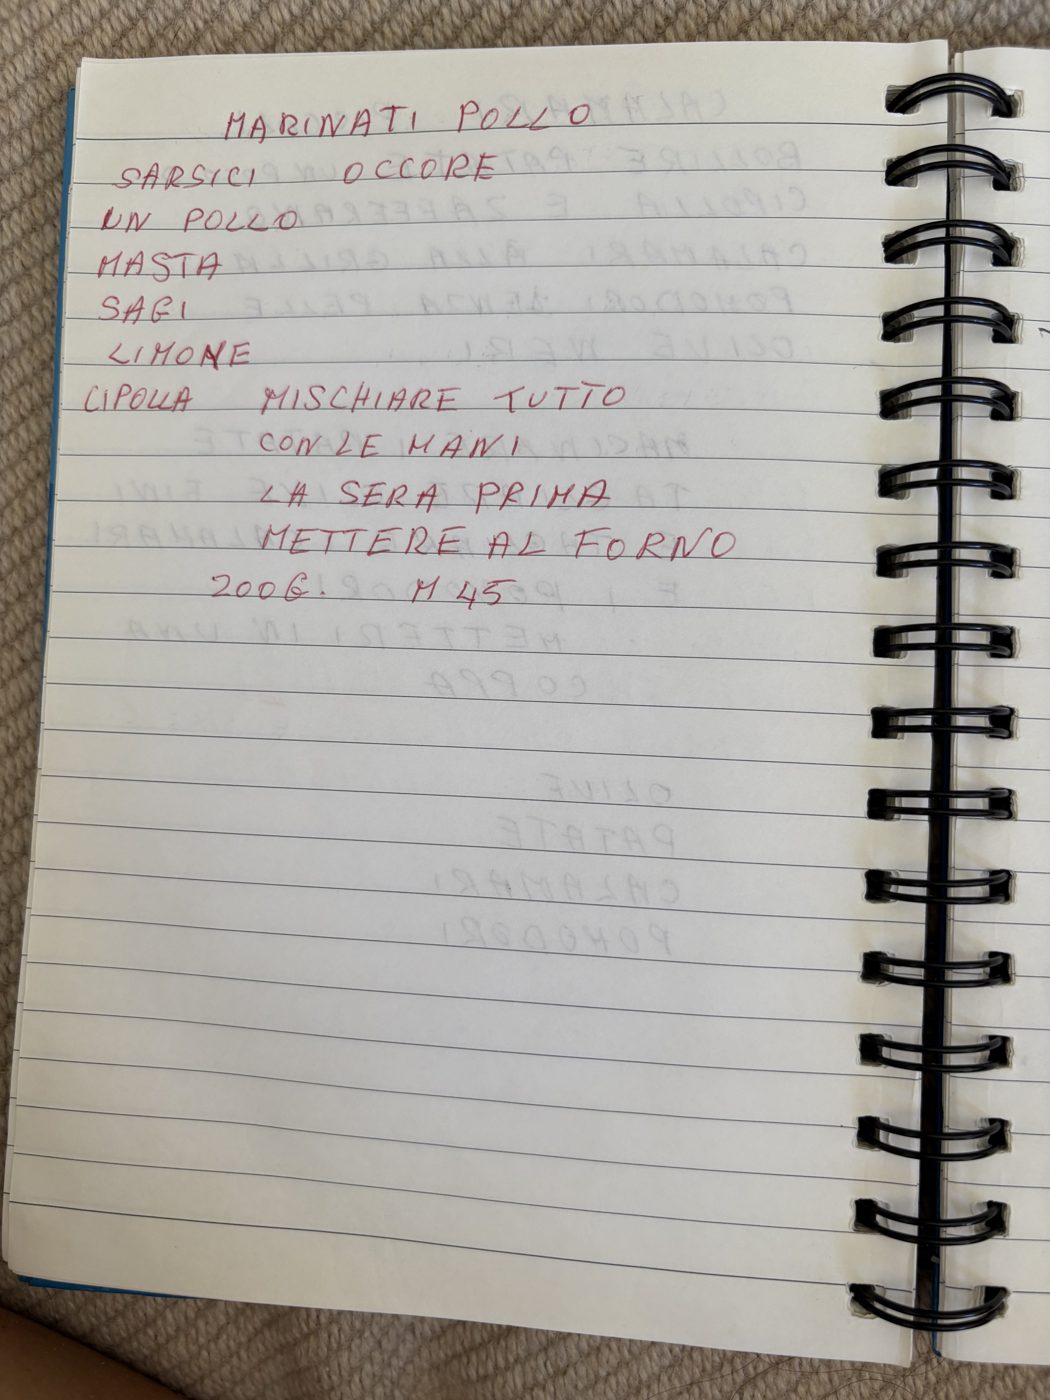 MARINATI POLLO
SARSICI OCCORE
UN POLLO
MASTA
SAGI
LIMONE
CIPOLLA MISCHIARE TUTTO
CON LE MANI
LA SERA PRIMA
METTERE AL FORNO
200G. M 45